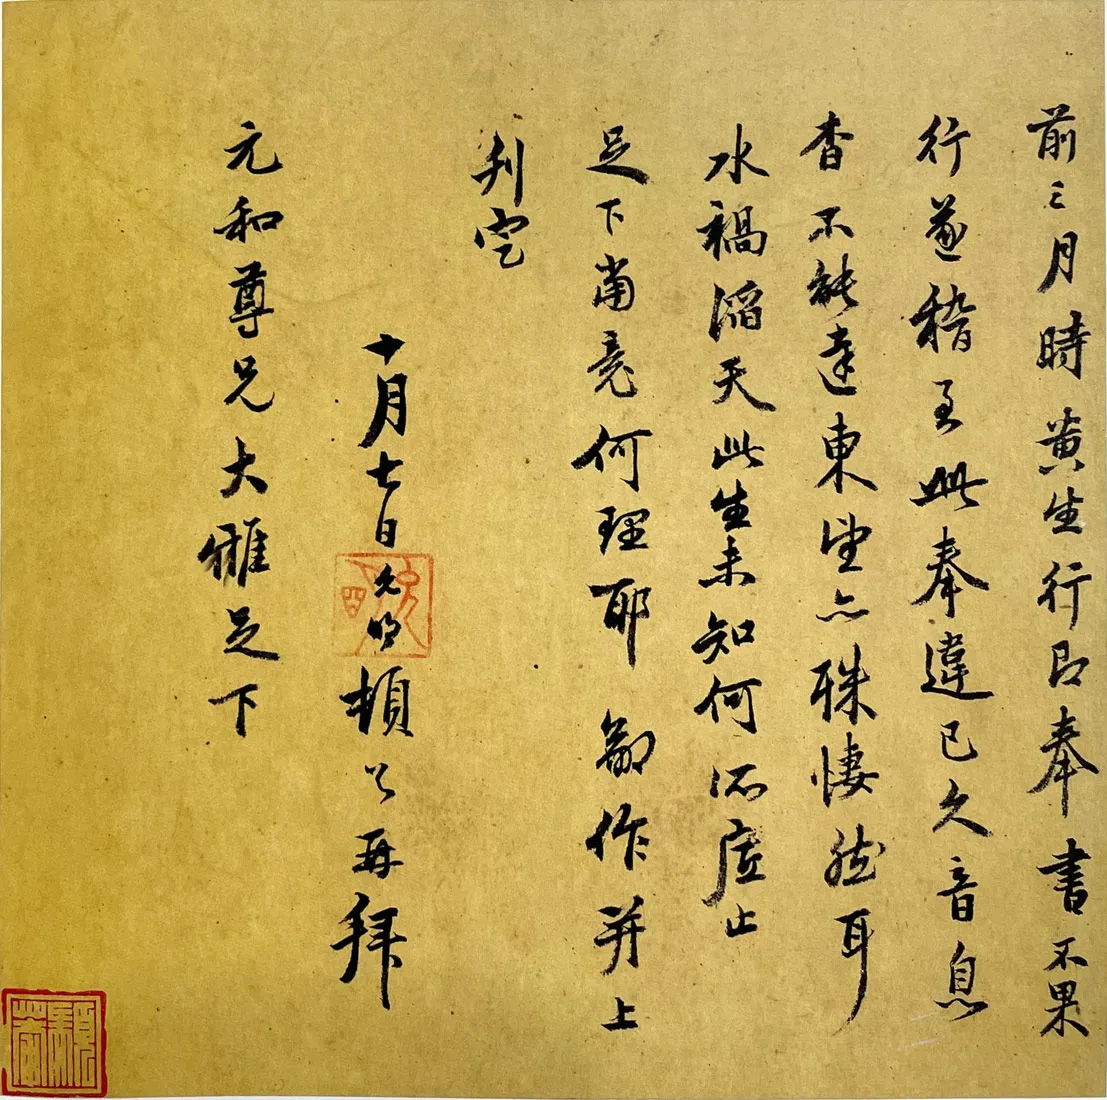 前三月時黄生行即奉書不果
行遂稽至此奉違已久音息
杳不能達東望亦殊悽然耳
水禍滔天此生未知何所底止
足下竟何理耶 鄙作并上
判定
十月七日允明頓首再拜
元和尊兄大雅足下